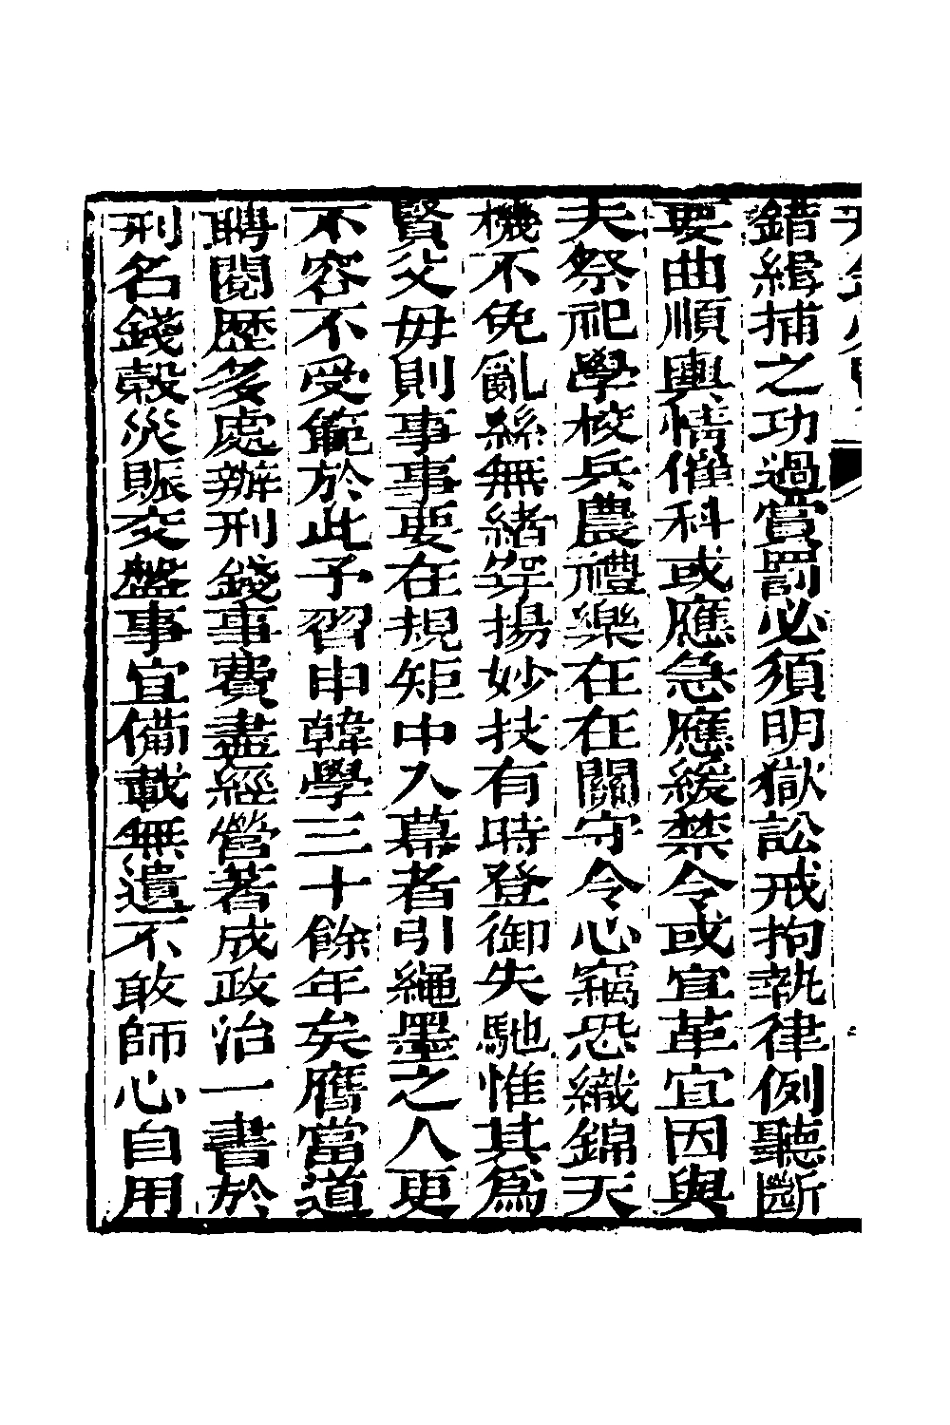 錯緝捕之功過賞罰必須明獄訟戒拘執律例聽斷
要曲順輿情催科或應急應緩禁令或宜革宜因與
夫祭祀學校兵農禮樂在在關守令心竊恐織錦天
機不免亂絲無緒穿揚妙技有時登御失馳惟其爲
賢父毋則事事要在規矩中入幕者引繩墨之人更
不容不受範於此予習申韓學三十餘年矣膺當道
聘閱歷多處辦刑錢事費盡經營著成政治一書於
刑名錢穀災賑交盤事宜備載無遺不敢師心自用